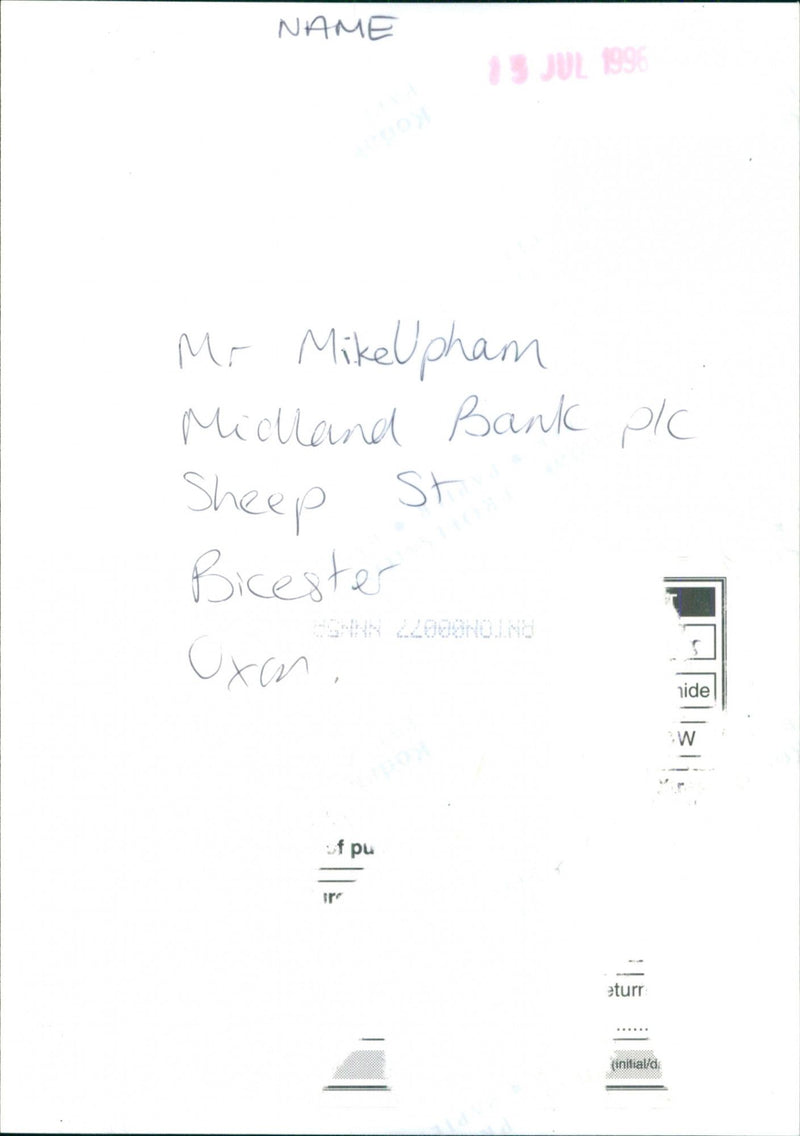 NAME
15 JUL 1996
Mr Mike Upham
Midland Bank plc
Sheep St
Bicester
Oxon.
hide
W
of pu
eturr
......
(initial/d